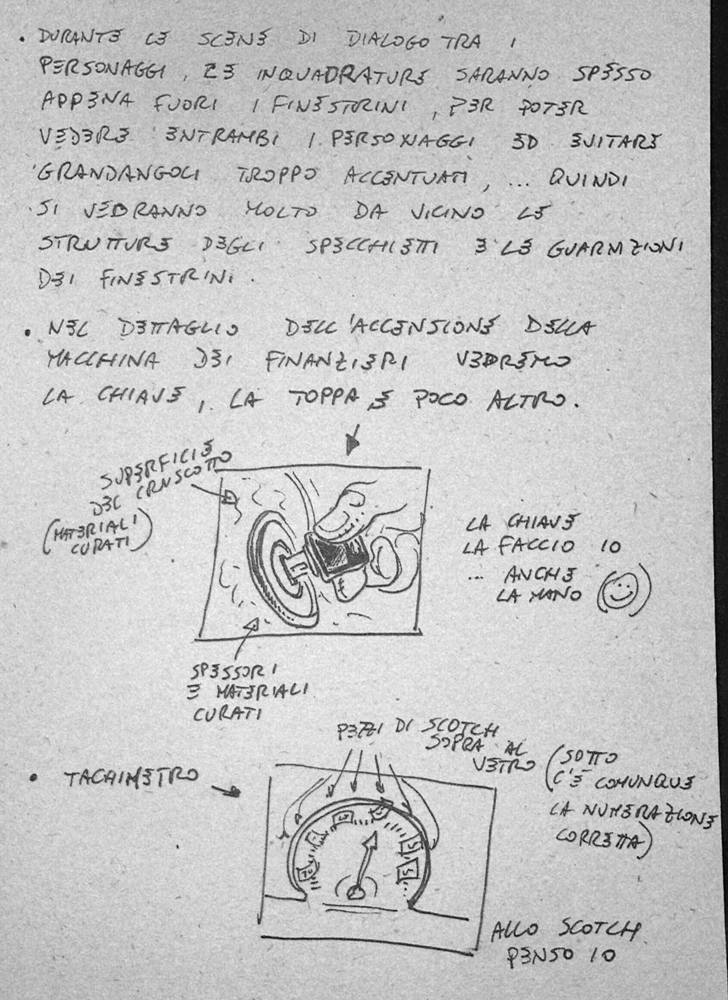 • DURANTE LE SCENE DI DIALOGO TRA I
PERSONAGGI, LE INQUADRATURE SARANNO SPESSO
APPENA FUORI I FINESTRINI, PER POTER
VEDERE ENTRAMBI I PERSONAGGI ED EVITARE
GRANDANGOLI TROPPO ACCENTUATI, ... QUINDI
SI VEDRANNO MOLTO DA VICINO LE
STRUTTURE DEGLI SPECCHIETTI E LE GUARNIZIONI
DEI FINESTRINI.
• NEL DETTAGLIO DELL'ACCENSIONE DELLA
MACCHINA DEI FINANZIERI VEDREMO
LA CHIAVE, LA TOPPA E POCO ALTRO.
SUPERFICIE
DEL CRUSCOTTO
(MATERIALI
CURATI)
LA CHIAVE
LA FACCIO IO
... ANCHE
LA MANO
SPESSORI
E MATERIALI
CURATI
PEZZI DI SCOTCH
SOPRA AL
VETRO
(SOTTO
C'È COMUNQUE
LA NUMERAZIONE
CORRETTA)
• TACHIMETRO
ALLO SCOTCH
PENSO IO